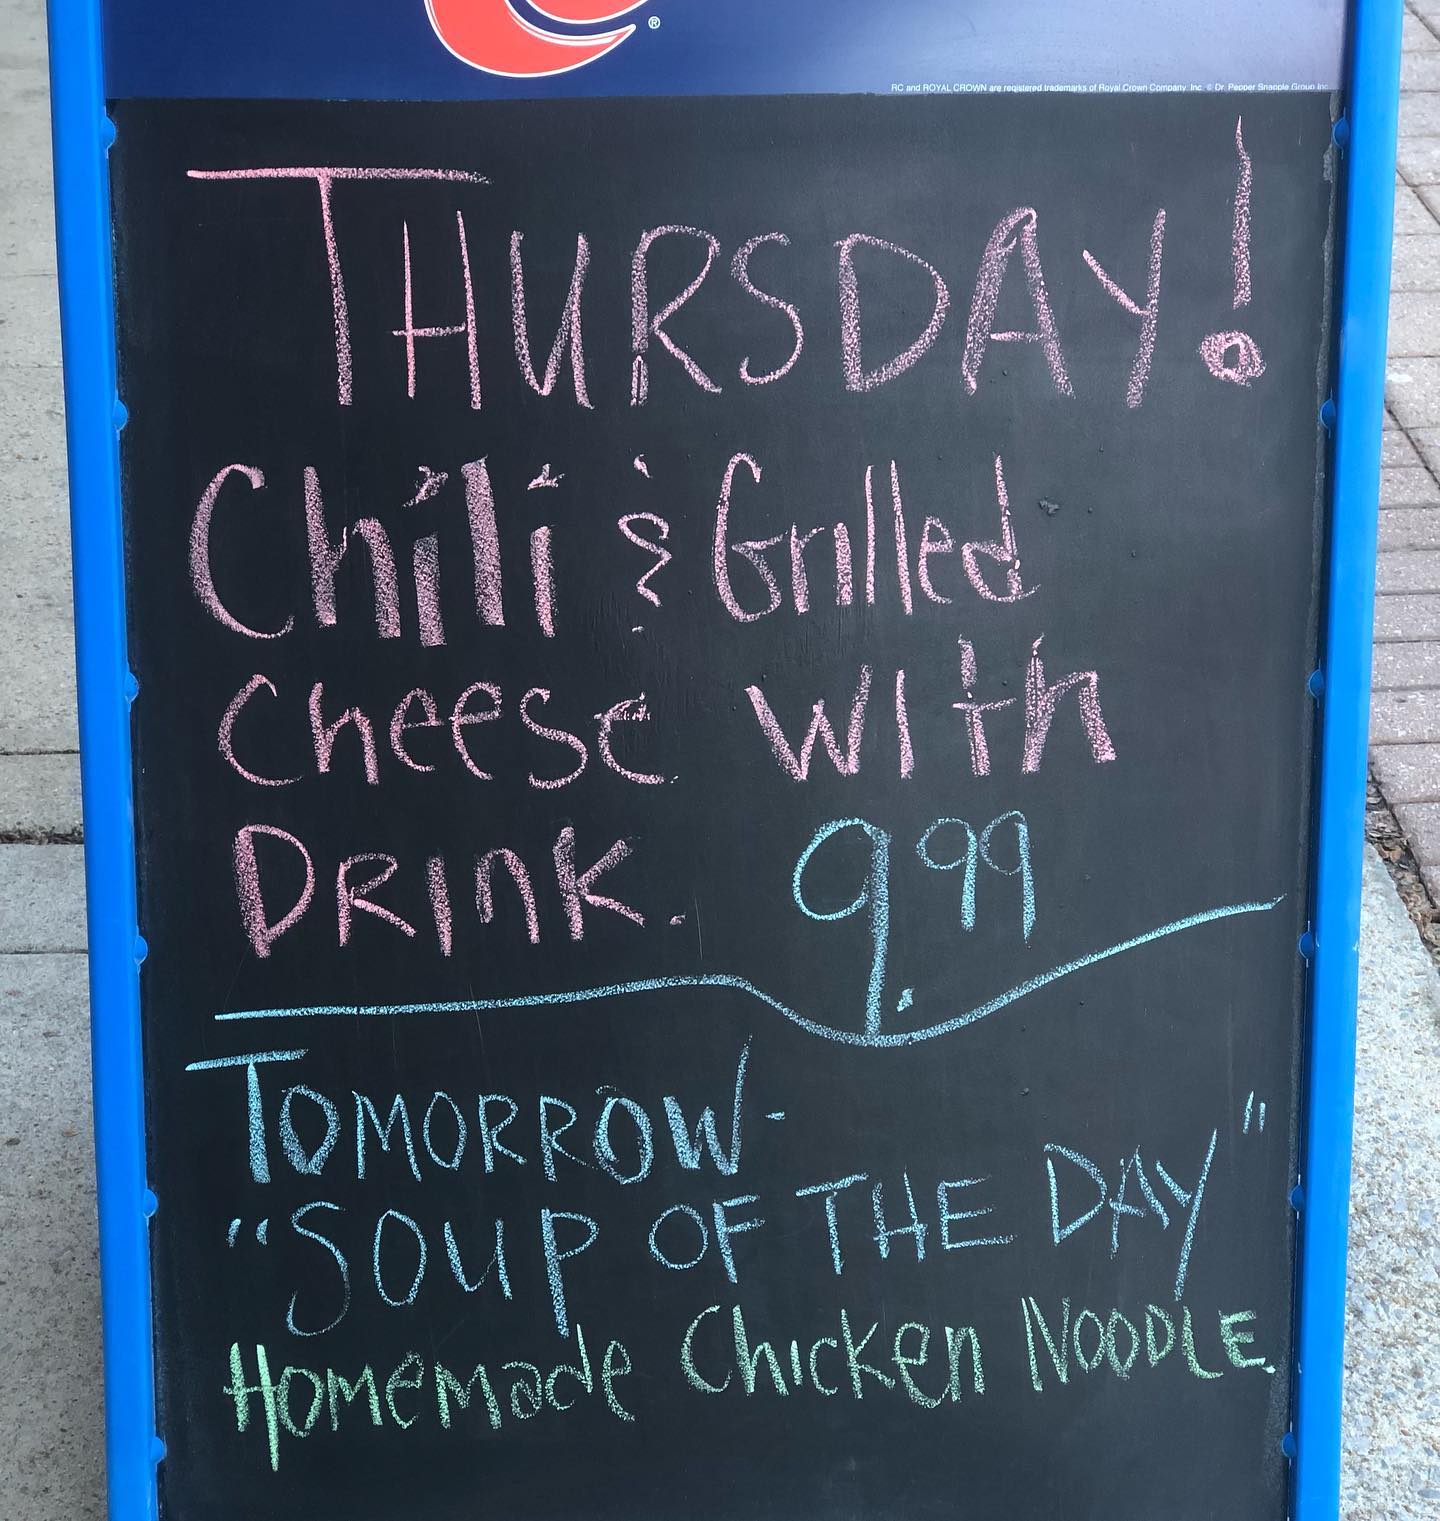 ®
RC and ROYAL CROWN are registered trademarks of Royal Crown Company, Inc. © Dr. Pepper Snapple Group Inc.
THURSDAY!
Chili & Grilled
Cheese with
DRINK. 9.99
TOMORROW-
"SOUP OF THE DAY"
Homemade Chicken NOODLE.